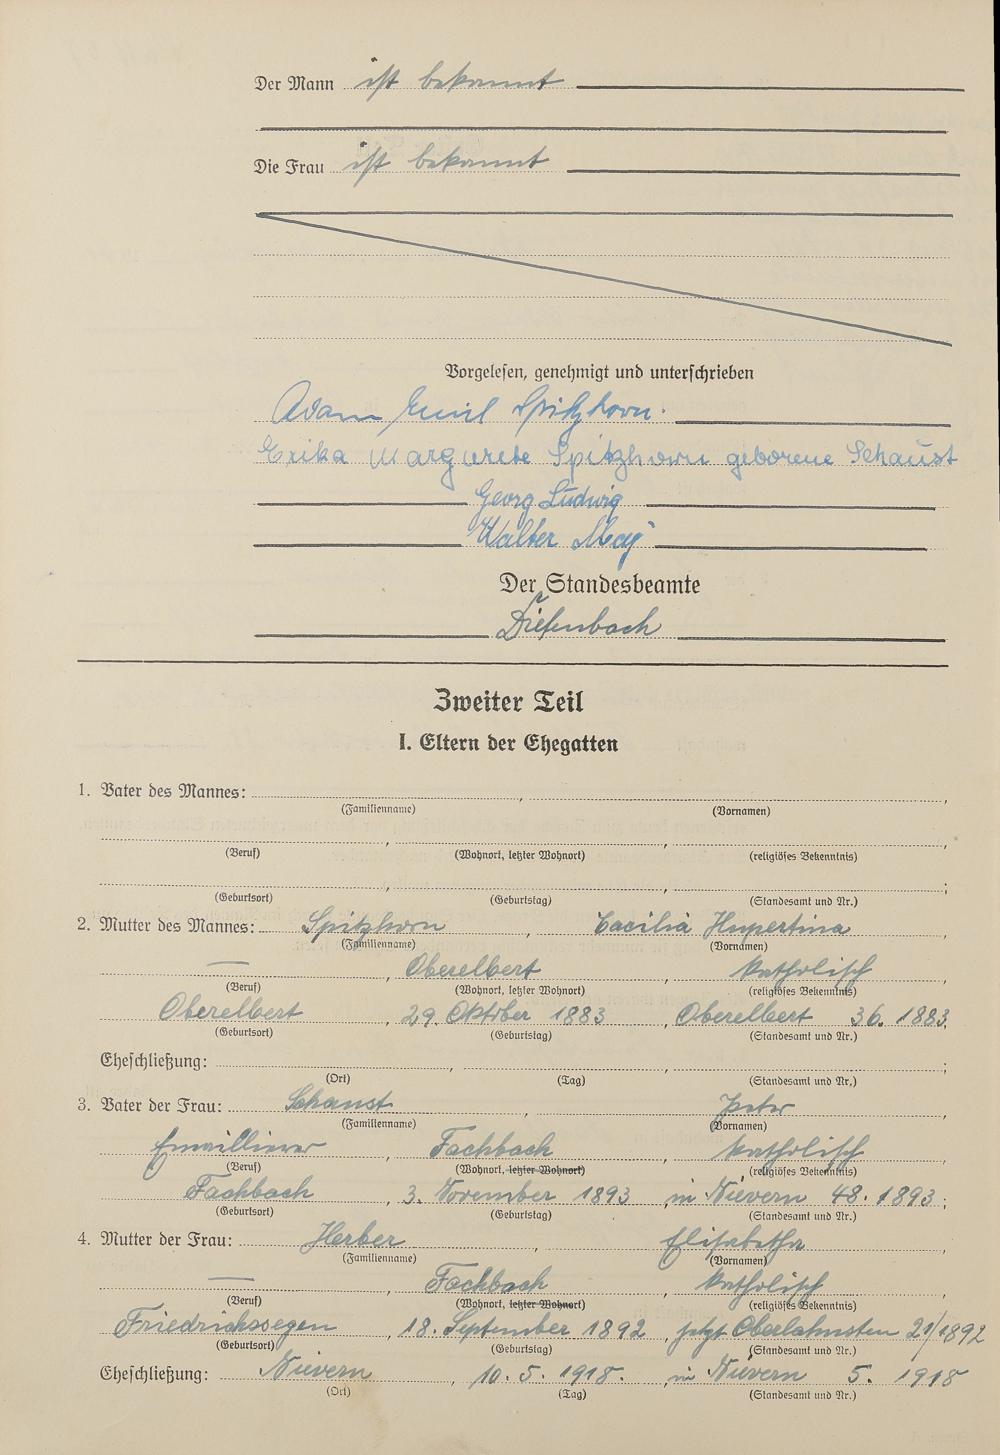 Der Mann ist bekannt
Die Frau ist bekannt
Vorgelesen, genehmigt und unterschrieben
Adam Emil Spitzhorn.
Erika Margarete Spitzhorn geborene Schaust
Georg Ludwig
Walter May
Der Standesbeamte
Diefenbach
Zweiter Teil
I. Eltern der Ehegatten
1. Vater des Mannes: , ,
(Familienname) (Vornamen)
, ,
(Beruf) (Wohnort, letzter Wohnort) (religiöses Bekenntnis)
, , ;
(Geburtsort) (Geburtstag) (Standesamt und Nr.)
2. Mutter des Mannes: Spitzhorn , Cäcilia Hupertina ,
(Familienname) (Vornamen)
— , Oberelbert , katholisch
(Beruf) (Wohnort, letzter Wohnort) (religiöses Bekenntnis)
Oberelbert , 29. Oktober 1883 , Oberelbert 36. 1883,
(Geburtsort) (Geburtstag) (Standesamt und Nr.)
Eheschließung: , , ;
(Ort) (Tag) (Standesamt und Nr,)
3. Vater der Frau: Schaust , Peter ,
(Familienname) (Vornamen)
Emaillierer , Fachbach , katholisch
(Beruf) (Wohnort, letzter Wohnort) (religiöses Bekenntnis)
Fachbach , 3. November 1893 , in Nievern 48. 1893 ;
(Geburtsort) (Geburtstag) (Standesamt und Nr.)
4. Mutter der Frau: Herber , Elisabetha ,
(Familienname) (Vornamen)
— , Fachbach , katholisch
(Beruf) (Wohnort, letzter Wohnort) (religiöses Bekenntnis)
Friedrichssegen , 18. September 1892 , jetzt Oberlahnstein 21/1892
(Geburtsort) (Geburtstag) (Standesamt und Nr.)
Eheschließung: Nievern , 10. 5. 1918. , in Nievern 5. 1918
(Ort) (Tag) (Standesamt und Nr.)